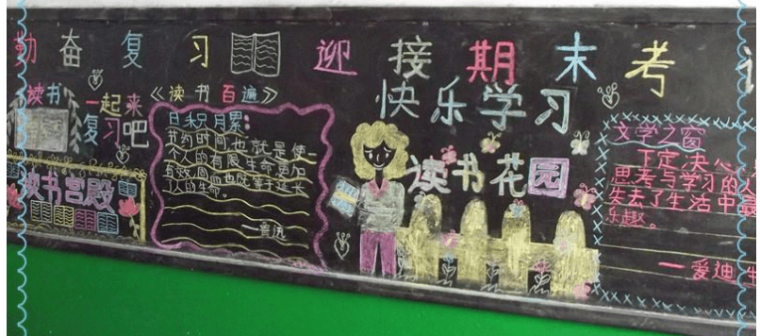 勤奋复习 迎接期末考
快乐学习
读书
一起来
复习吧
读书宫殿
《读书百遍》
日积月累:
节约时间也就是使一
个人的有限生命更加
有效 也就等于延长
了人的生命。
—鲁迅
读书花园
文学之窗
下定决心
思考与学习的人
失去了生活中最
乐趣。
—爱迪生